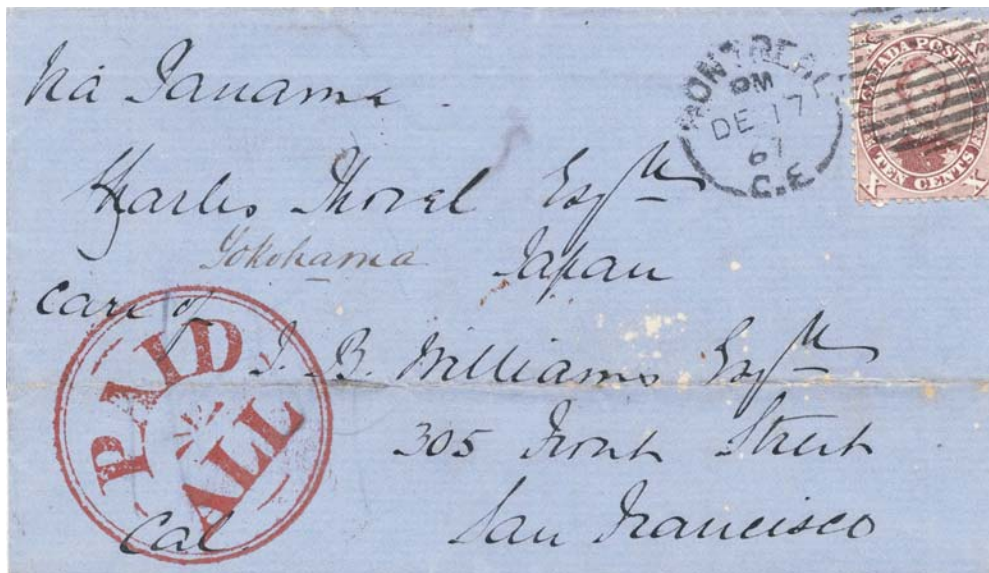 Via Panama
MONTREAL
PM
DE 17
67
C.E
CANADA POSTAGE
TEN CENTS
X X X
Charles Thorel Esqre
Yokohama Japan
Care of
J. B. Williams Esqre
PAID
ALL
305 Front Street
San Francisco
Cal